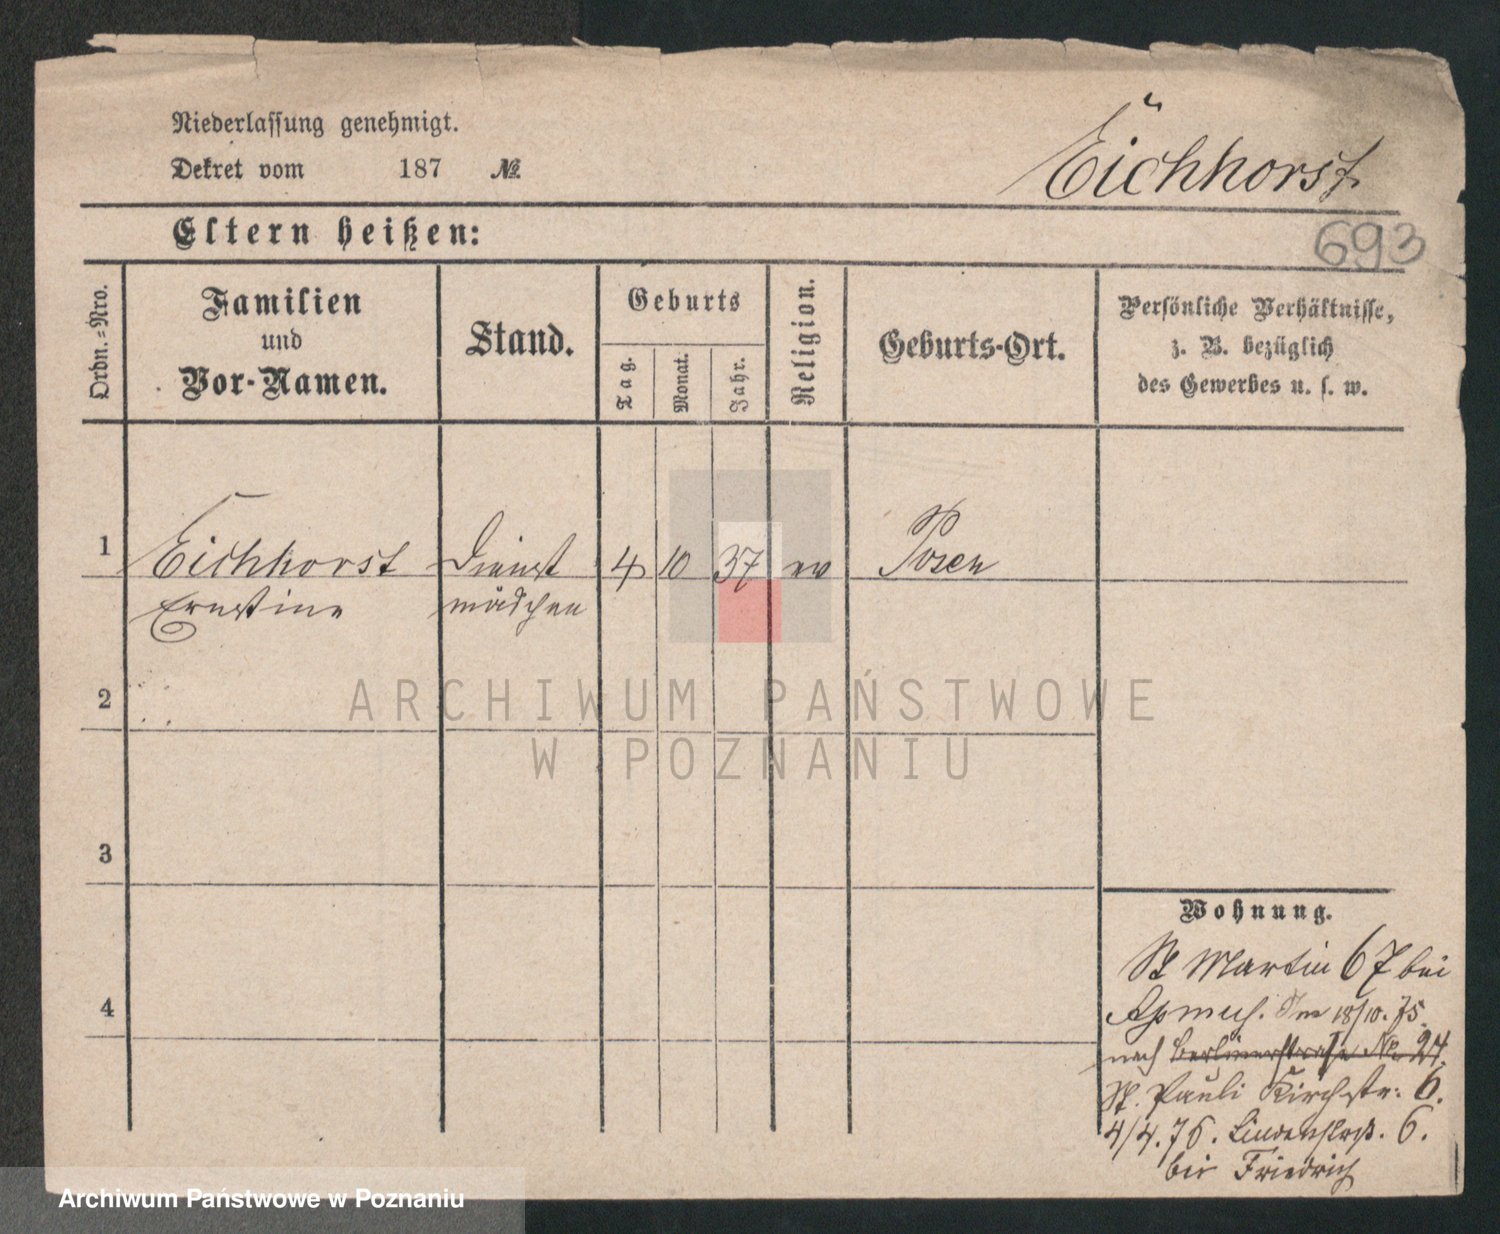 Niederlassung genehmigt.
Dekret vom 187 №
Eichhorst
Eltern heißen:
693
Ordn.-Nro.
Familien
und
Vor-Namen.
Stand.
Geburts
Tag.
Monat.
Jahr.
Religion.
Geburts-Ort.
Persönliche Verhältnisse,
z. B. bezüglich
des Gewerbes u. s. w.
1 Eichhorst Dienst 4 10 37 ev Posen
Ernestine mädchen
2
ARCHIWUM PAŃSTWOWE
W POZNANIU
3
Wohnung.
St Martin 67 bei
18/10. 75.
4
nach Berlinerstraße No 24.
St. Pauli Kirchstr: 6.
4/4. 76. Lindenstraß. 6.
bei Friedrich
Archiwum Państwowe w Poznaniu